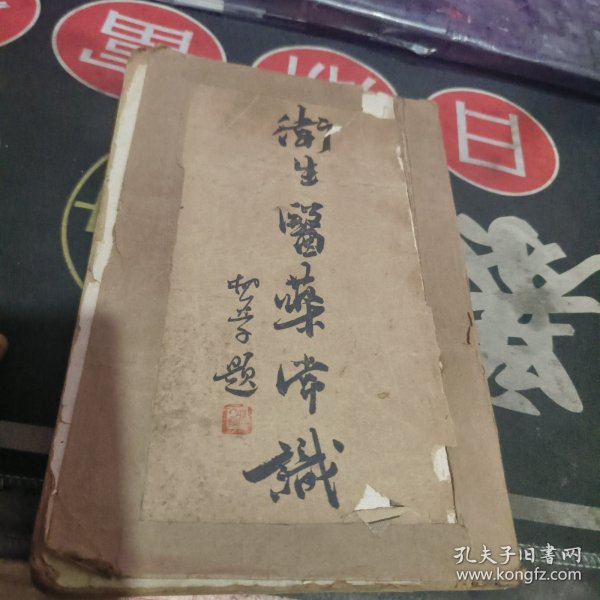 衛生醫藥常識
題
孔夫子旧书网
www.kongfz.com